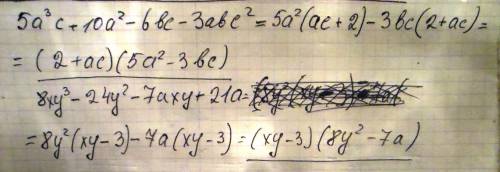 5a³c + 10a² - 6bc - 3abc² = 5a²(ac + 2) - 3bc(2 + ac) =
= (2 + ac)(5a² - 3bc)
8xy³ - 24y² - 7axy + 21a =
= 8y²(xy - 3) - 7a(xy - 3) = (xy - 3)(8y² - 7a)